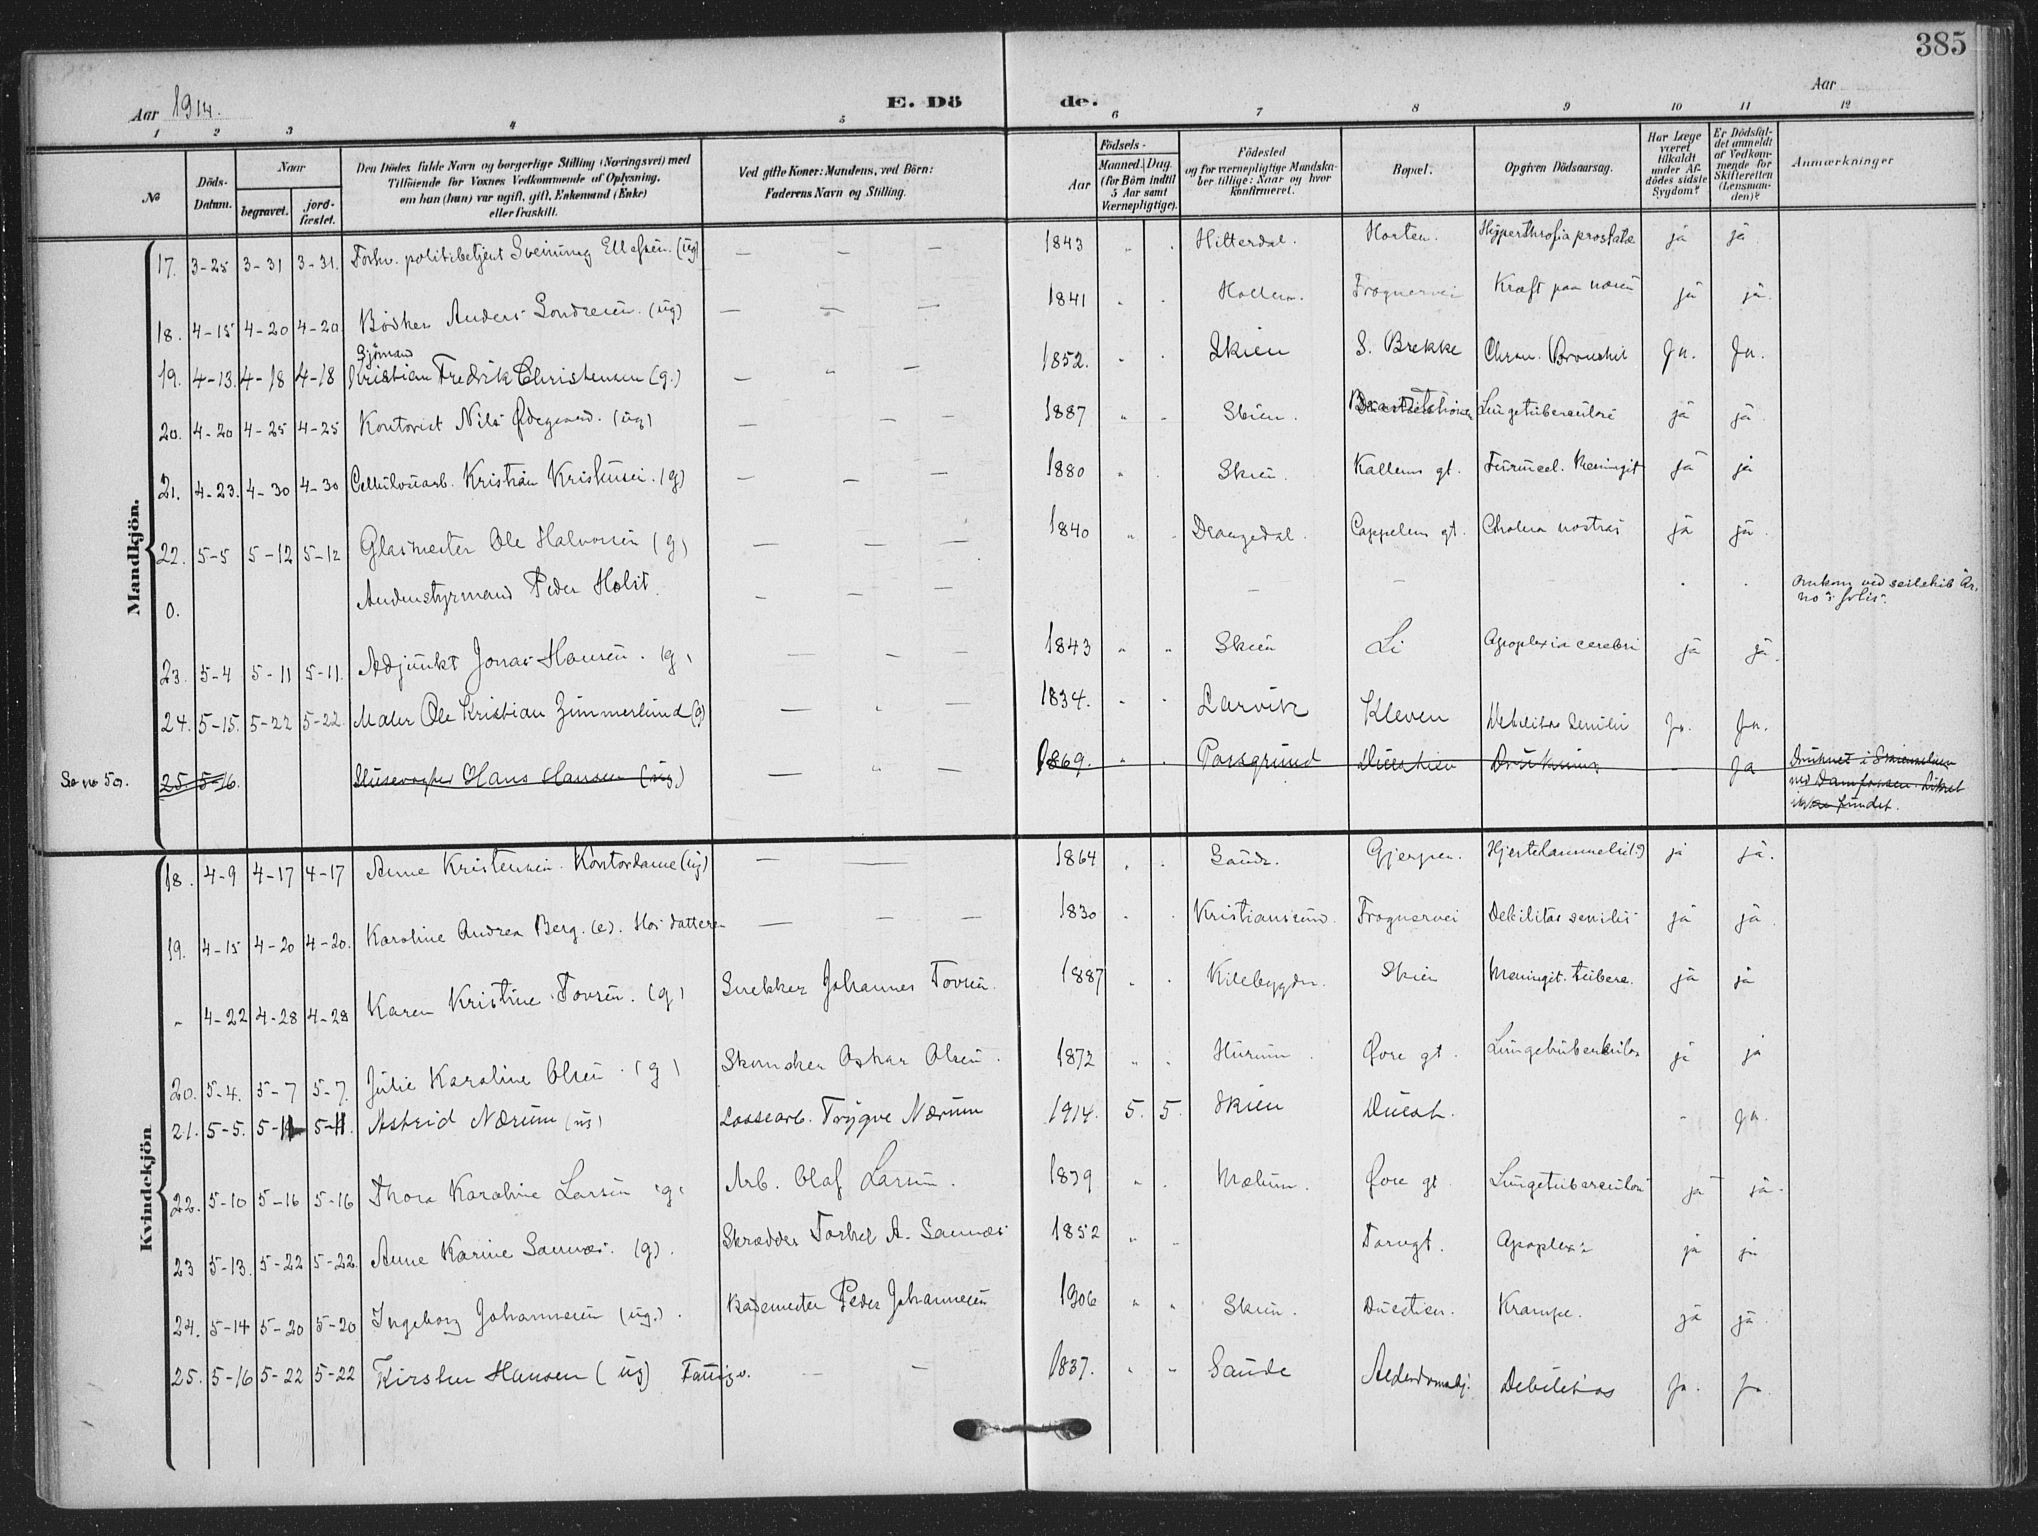 385
Aar 1914.
E. Dö de.
Aar
1 2 3 4 5 6 7 8 9 10 11 12
№
Döds-Datum.
Naar
begravet.
jord-fæstet.
Den Dödes fulde Navn og borgerlige Stilling (Næringsvei) med
Tilföiende for Voxnes Vedkommende af Oplysning,
om han (hun) var ugift, gift, Enkemand (Enke)
eller fraskilt.
Ved gifte Koner: Mandens, ved Börn:
Faderens Navn og Stilling.
Aar
Födsels-
Maaned. Dag.
(for Börn indtil
5 Aar samt
Værnepligtige).
Födested
og for værnepligtige Mandska-
ber tillige: Naar og hvor
konfirmeret.
Bopæl.
Opgiven Dödsaarsag.
Har Læge
været
tilkaldt
under Af-
dödes sidste
Sygdom?
Er Dödsfal-
det anmeldt
af Vedkom-
mende for
Skifteretten
(Lensman-
den)?
Anmærkninger
Mandkjön.
17. 3-25 3-31 3-31. Forhv. politibetjent Sveinung Ellefsen. (ug) — — — 1843 " . Hitterdal. Horten. Hyperthrofia prostatæ ja ja
18. 4-15 4-20 4-20 Bödker Anders Sondresen. (ug) — — — 1841 " . Hollen. Frognervei Kræft paa næsen ja ja.
Sjömand
19. 4-13. 4-18 4-18 Kristian Fredrik Christensen (g.) — " — 1852. " . Skien S. Brekke Chron. Bronchit Ja. Ja.
20. 4-20 4-25 4-25 Kontorist Nils Ødegaard. (ug) — — — 1887 " . Skien. Lungetuberculose ja ja.
21. 4-23. 4-30 4-30 Cellulosearb. Kristian Kristensen. (g) — — — 1880 " . Skien. Kallems gt. Tubercul. Meningit ja ja
22. 5-5 5-12 5-12 Glasmester Ole Halvorsen (g) — — — 1840 " . Drangedal. Cappelens gt. Cholera nostras ja ja.
0. Andenstyrmand Peder Holst. — — — — — . . Omkom ved seilskib Ar-
no's forlis".
23. 5-4 5-11 5-11. Adjunkt Jonas Hansen. (g) — — — 1843 " " Skien Li Apoplexia cerebri ja ja.
24. 5-15. 5-22 5-22. Maler Ole Kristian Zimmerlund (g) — " — 1834. " . Larvik Kleven Debilitas senilis Ja. Ja.
Se no 50. 25. 5-16. Hans Hansen (ug.) — " — 1869. " . Porsgrund Duestien Drukning — Ja Druknet i Skienselven
ved Damfossen. Liket
ikke fundet.
Kvindekjön
18. 4-9 4-17 4-17 Anne Kristensen. Kontordame (ug) — — 1864 " . Saude. Gjerpen. ja ja.
19. 4-15 4-20 4-20. Karoline Andrea Berg. (e). Hos datteren — — — 1830 " . Kristiansund. Frognervei Debilitas senilis ja ja
" 4-22 4-28 4-28 Karen Kristine Tovsen. (g) Snekker Johannes Tovsen. 1887 " . Kilebygden. Skien Meningit. tuberc. ja ja
20. 5-4. 5-7 5-7. Julie Karoline Olsen. (g) Skomaker Oskar Olsen. 1872 " . Hurum. Øvre gt. Lungetuberkulos ja ja
21. 5-5. 5-11 5-11. Astrid Nærum (ug) Lossearb. Trygve Nærum 1914. 5. 5. Skien Duest. - Ja.
22. 5-10 5-16 5-16 Thora Karoline Larsen (g) Arb. Olaf Larsen. 1879 " . Mælum. Øvre gt. Lungetuberculose ja ja.
23 5-13. 5-22 5-22. Anne Karine Sannæs. (g). Skrædder Torkel A. Sannæs 1852 " - Torvgt. Apoplexi ja ja
24. 5-14 5-20 5-20 Ingeborg Johannesen (ug.). Bademester Peder Johannesen 1906 " " Skien. Duestien. Krampe. ja ja.
25. 5-16 5-22 5-22 Kirsten Hansen (ug) Fattigv. — — 1837. " " Saude Alderdomshj. Debilitas Ja. Ja.